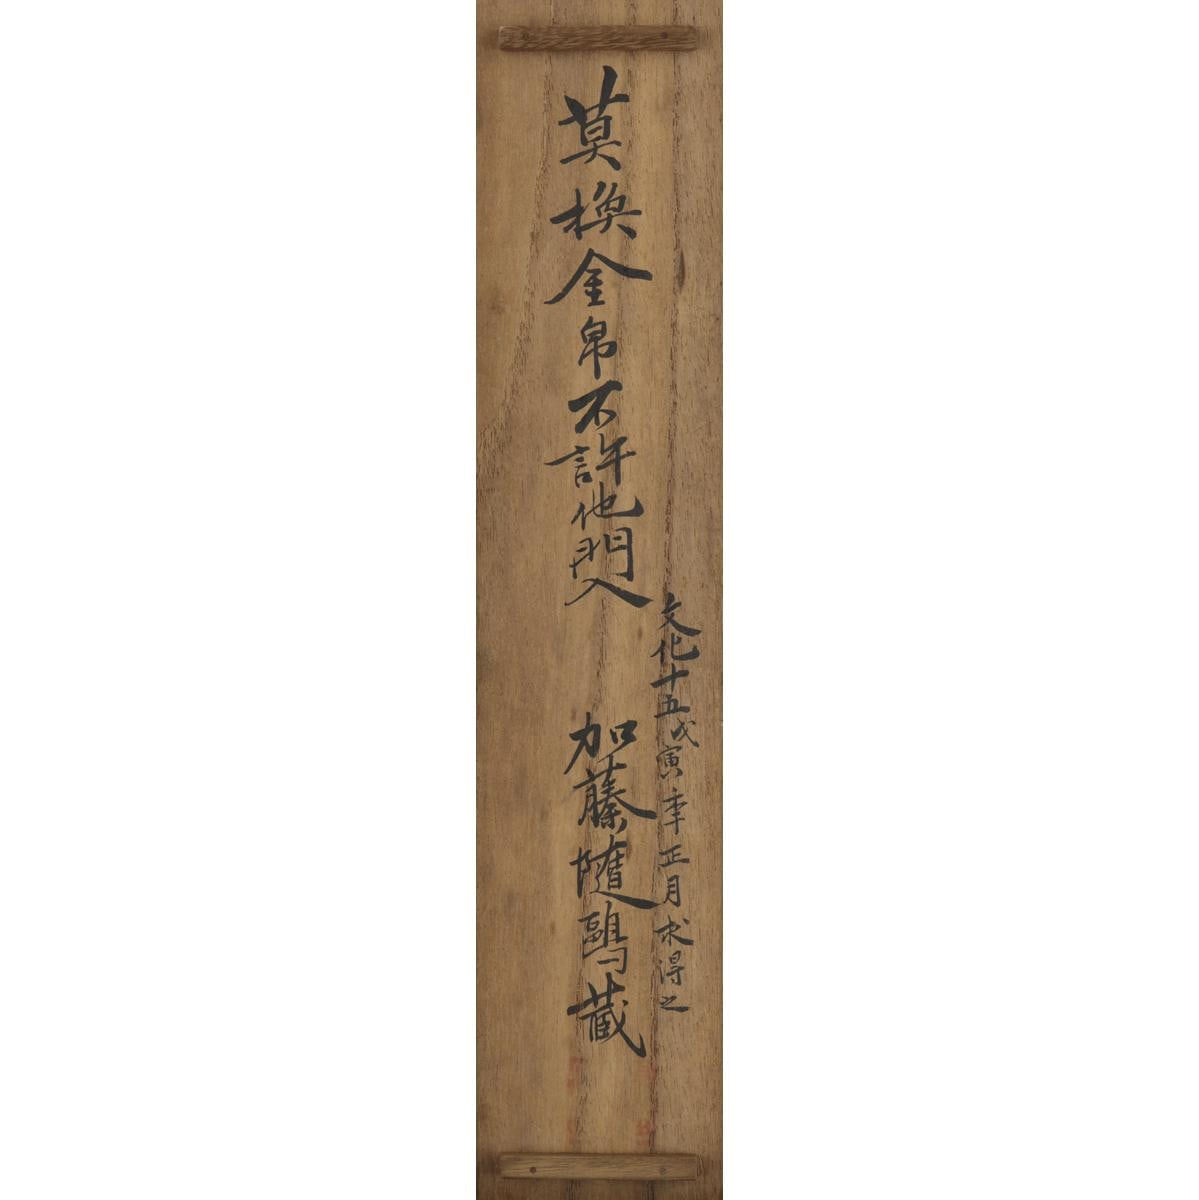 文化十五戊寅年正月求得之
莫換金帛不許他門入
加藤随鷗蔵